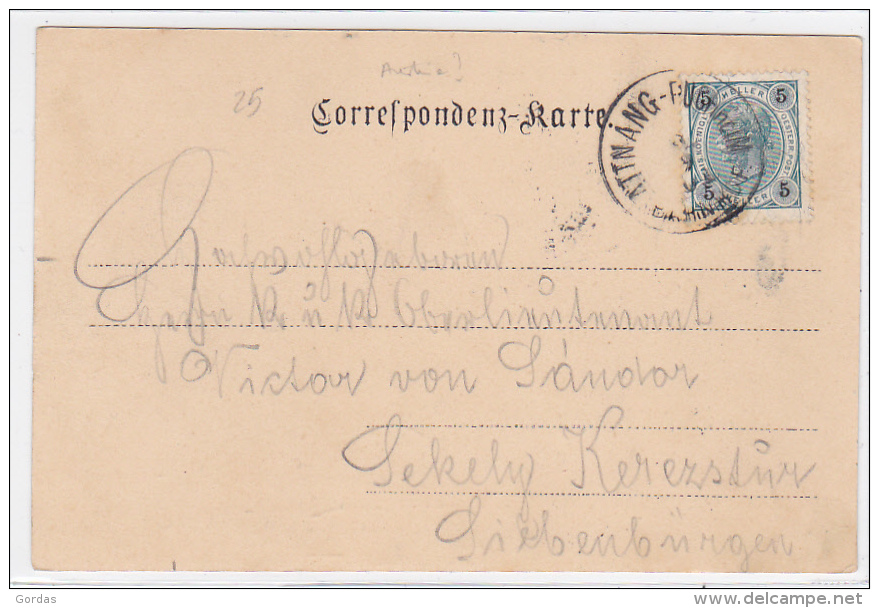 Austria?
25
Correspondenz-Karte
5 HELLER 5
5 HELLER 5
Hochwohlgeboren
Herrn k u k Oberlieutenant
Victor von Sándor
Sekely Kerezstúr
Siebenbürgen
Gordas
www.delcampe.net